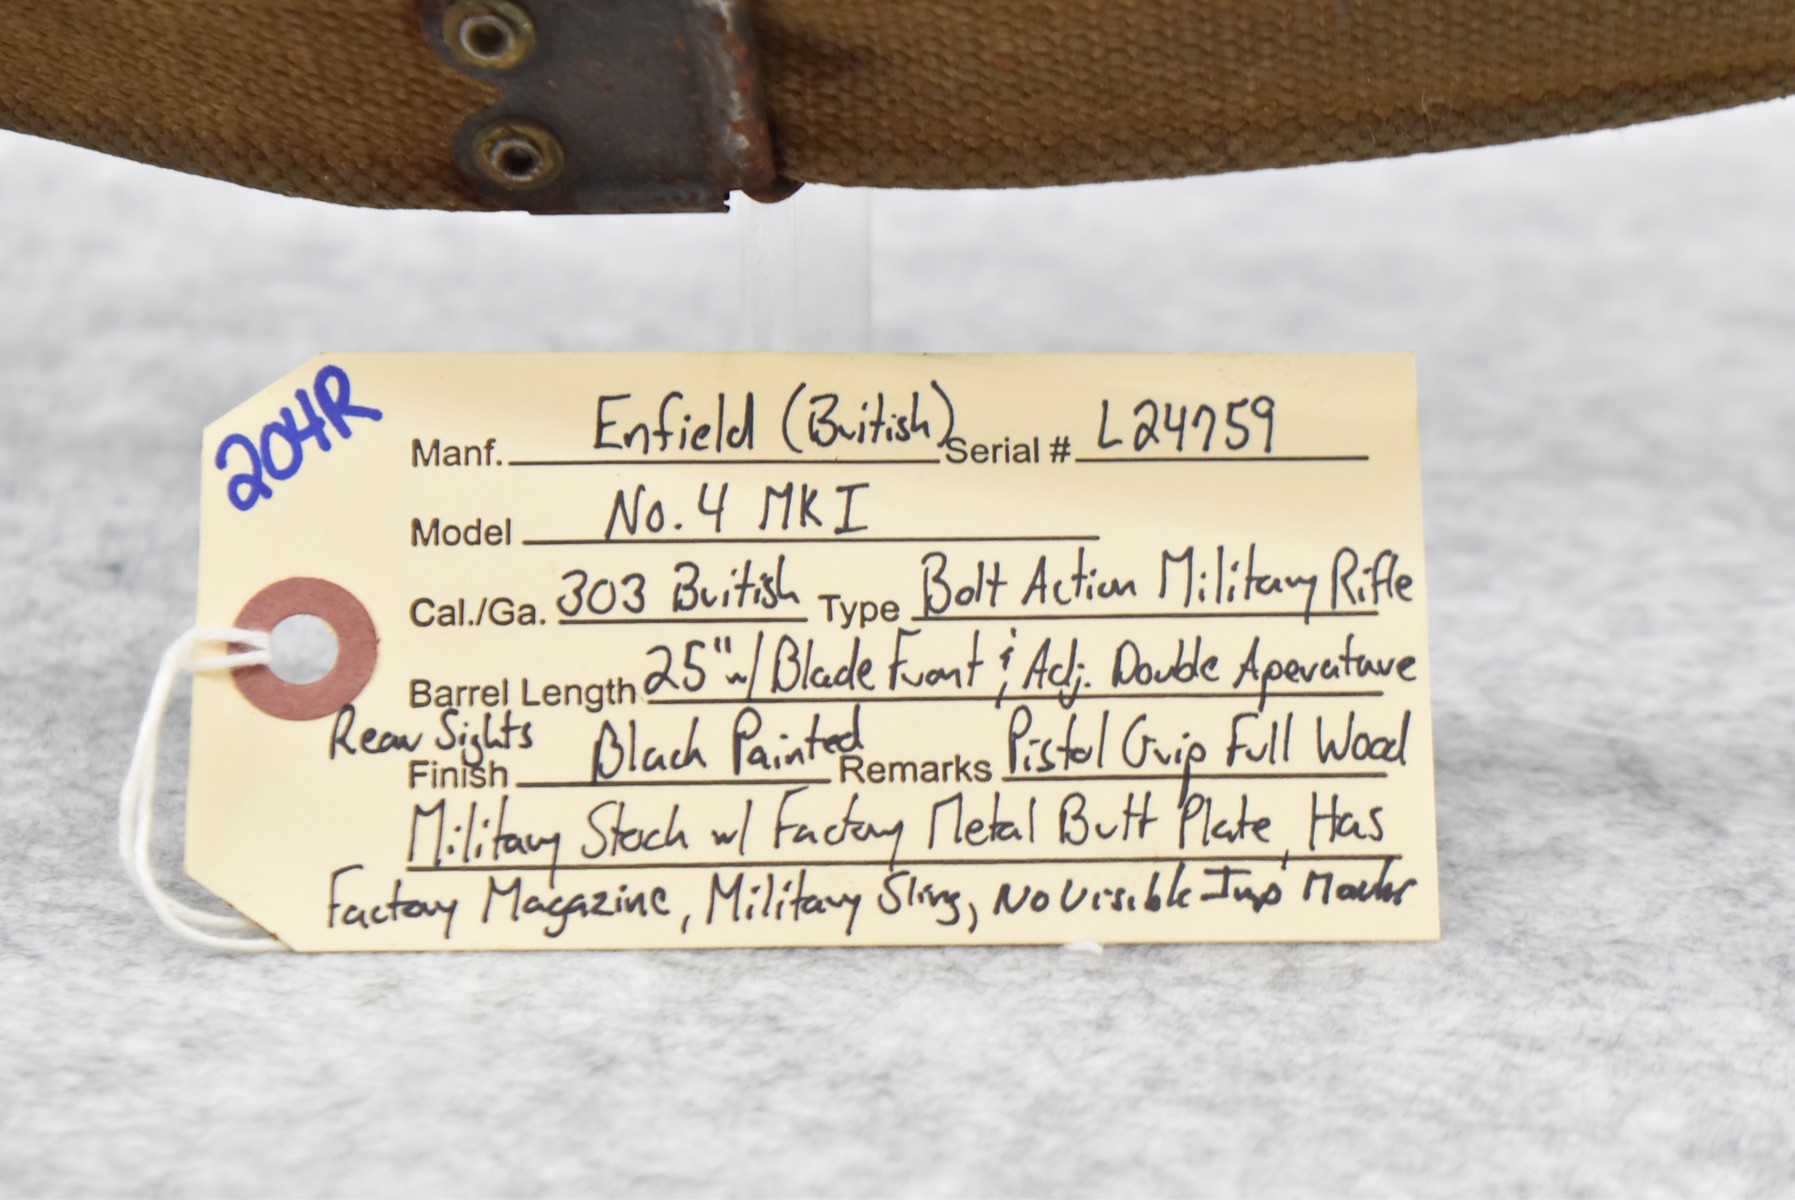 204R
Manf. Enfield (British) Serial # L24759
Model No. 4 MK I
Cal./Ga. 303 British Type Bolt Action Military Rifle
Barrel Length 25" w/ Blade Front & Adj. Double Aperature
Rear Sights
Finish Black Painted Remarks Pistol Grip Full Wood
Military Stock w/ Factory Metal Butt Plate, Has
Factory Magazine, Military Sling, No Visible Imp Marks